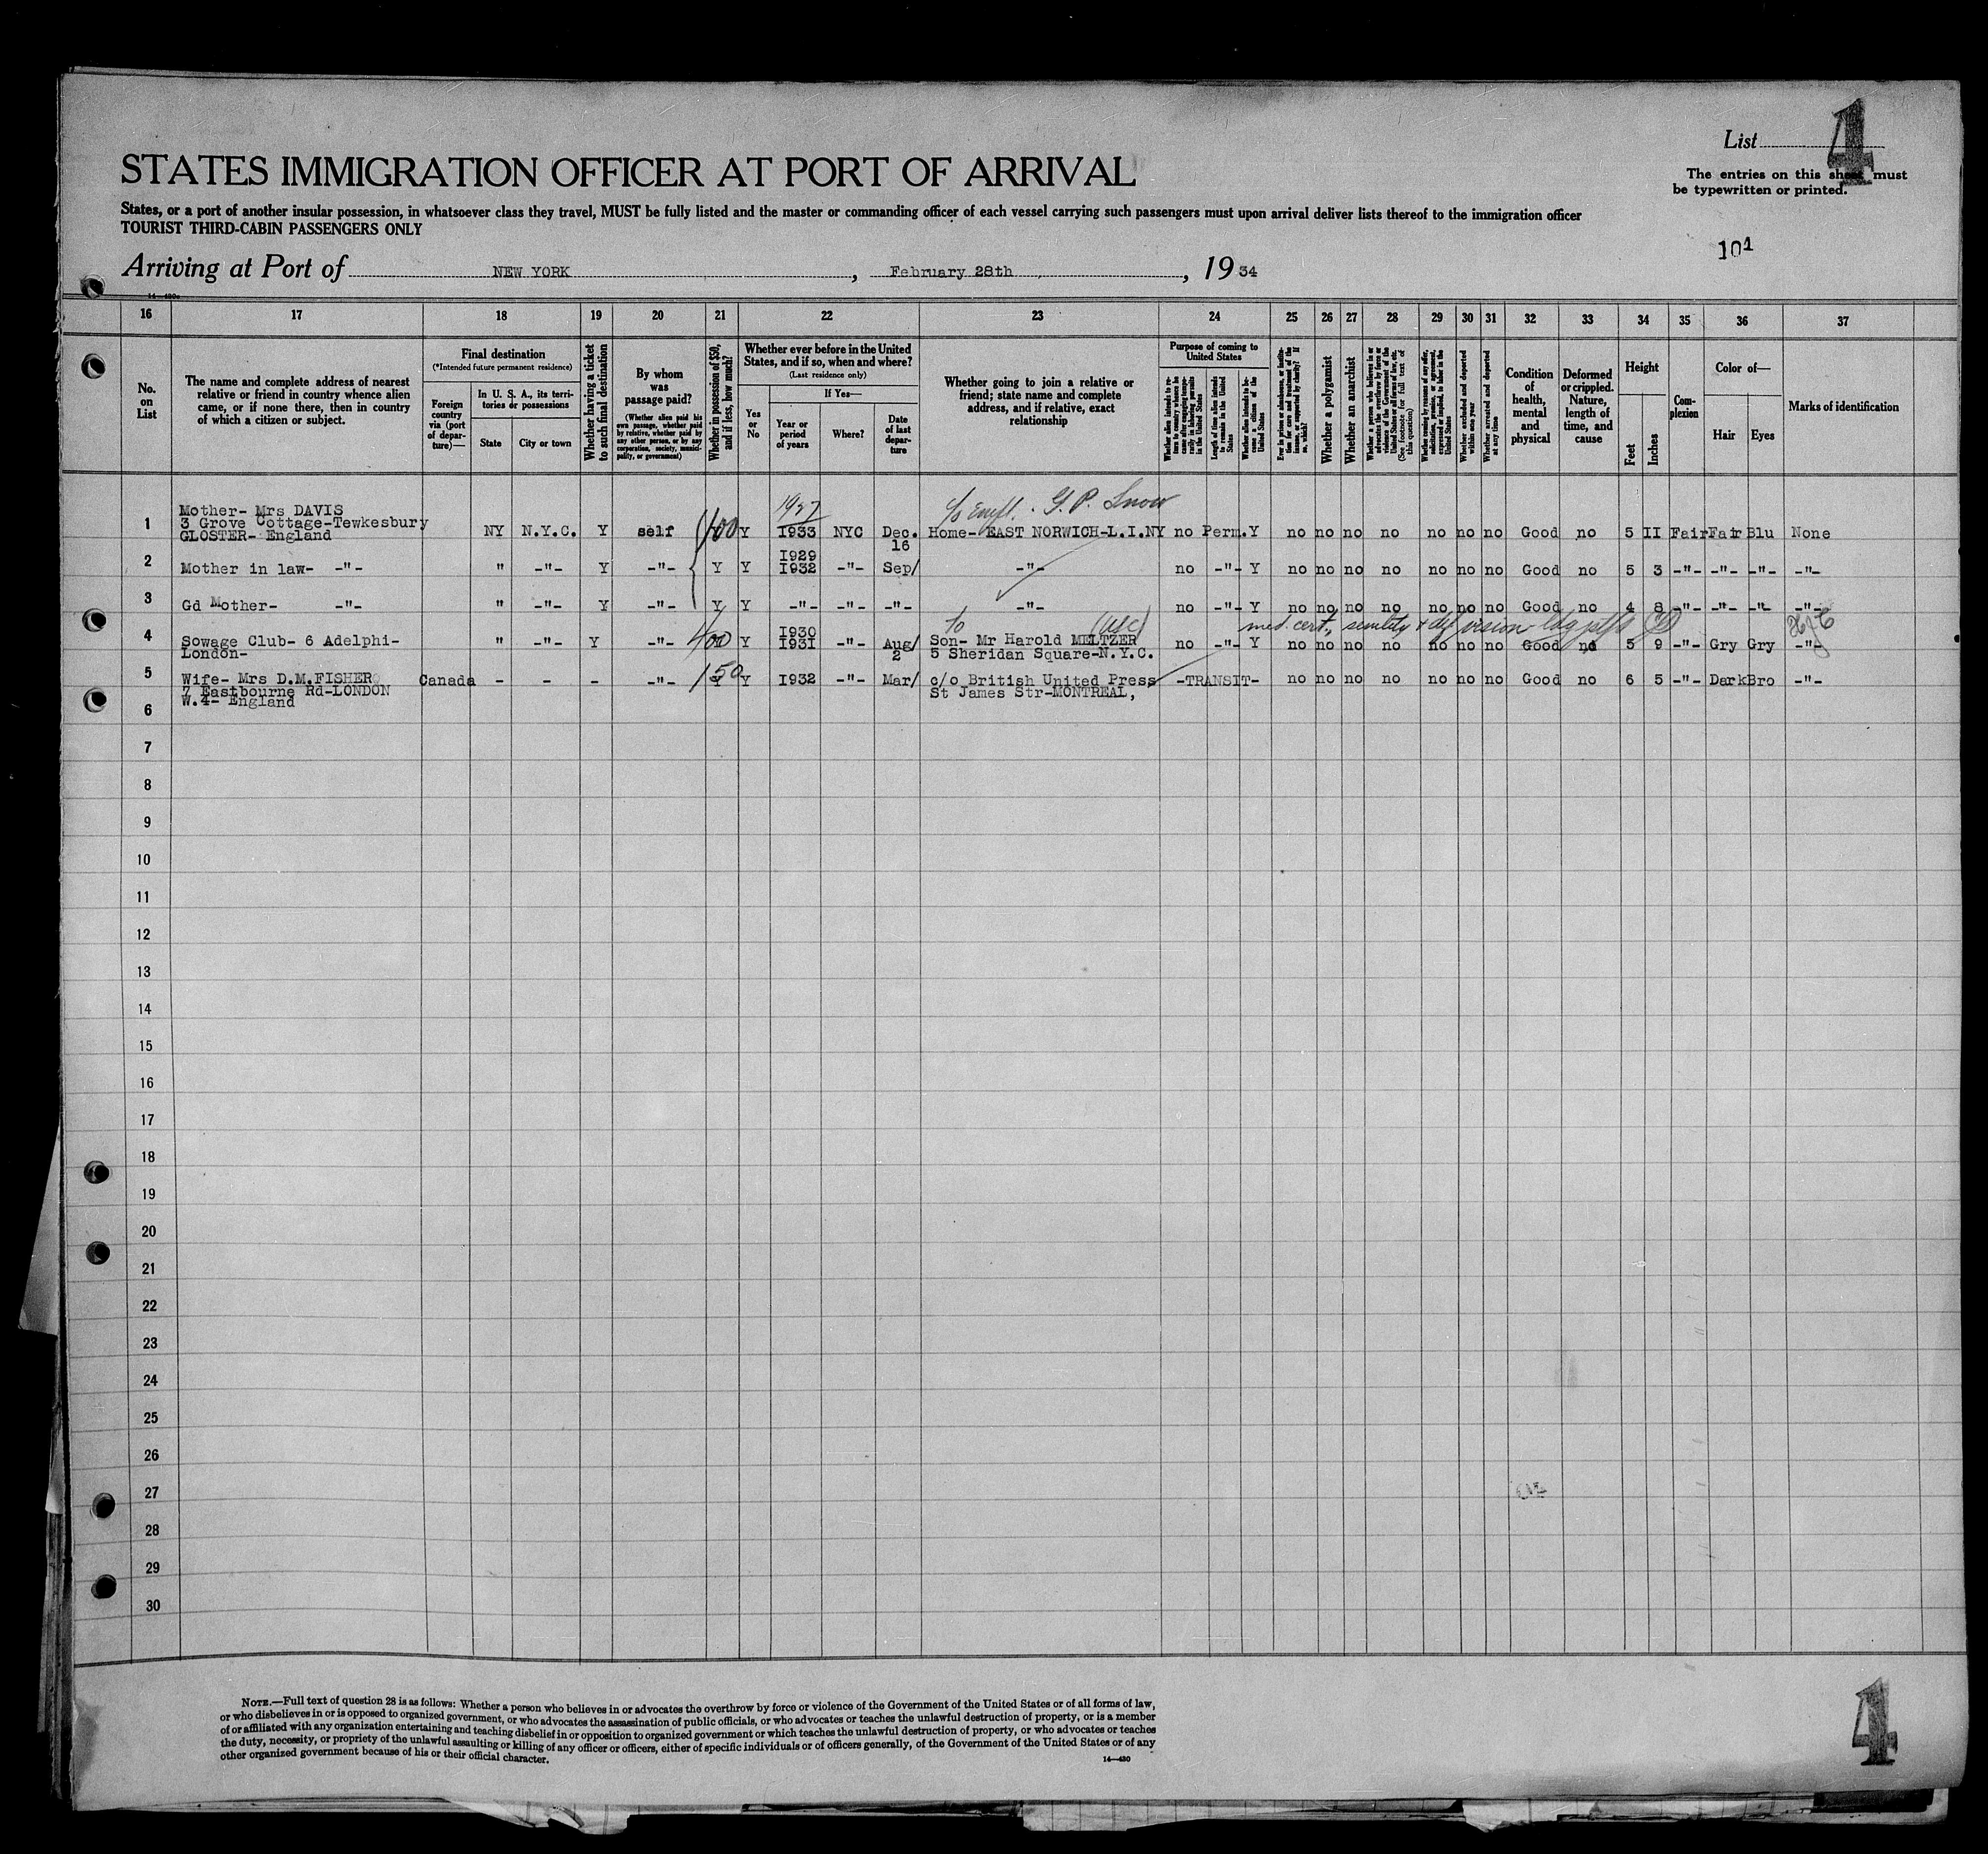 List 4
STATES IMMIGRATION OFFICER AT PORT OF ARRIVAL
The entries on this sheet must
be typewritten or printed.
States, or a port of another insular possession, in whatsoever class they travel, MUST be fully listed and the master or commanding officer of each vessel carrying such passengers must upon arrival deliver lists thereof to the immigration officer
TOURIST THIRD-CABIN PASSENGERS ONLY
101
Arriving at Port of NEW YORK, February 28th, 19 34
16 17 18 19 20 21 22 23 24 25 26 27 28 29 30 31 32 33 34 35 36 37
No. on List
The name and complete address of nearest relative or friend in country whence alien came, or if none there, then in country of which a citizen or subject.
Final destination
(*Intended future permanent residence)
Foreign country via (port of departure)—
In U. S. A., its territories or possessions
State
City or town
Whether having a ticket to such final destination
By whom was passage paid?
(Whether alien paid his own passage, whether paid by relative, whether paid by any other person, or by any corporation, society, municipality, or government)
Whether in possession of $50, and if less, how much?
Whether ever before in the United States, and if so, when and where?
(Last residence only)
Yes or No
If Yes—
Year or period of years
Where?
Date of last departure
Whether going to join a relative or friend; state name and complete address, and if relative, exact relationship
Purpose of coming to United States
Whether alien intends to return to country whence he came after engaging temporarily in laboring pursuits in the United States
Length of time alien intends to remain in the United States
Whether alien intends to become a citizen of the United States
Ever in prison or almshouse, or institution for care and treatment of the insane, or supported by charity? If so, which?
Whether a polygamist
Whether an anarchist
Whether a person who believes in or advocates the overthrow by force or violence of the Government of the United States or all forms of law, etc. (See footnote for full text of this question)
Whether coming by reason of any offer, solicitation, promise, or agreement, expressed or implied, to labor in the United States
Whether excluded and deported within one year
Whether arrested and deported at any time
Condition of health, mental and physical
Deformed or crippled. Nature, length of time, and cause
Height
Feet
Inches
Complexion
Color of—
Hair
Eyes
Marks of identification
1937
G. P. Snow
1 Mother- Mrs DAVIS
3 Grove Cottage-Tewkesbury
GLOSTER- England NY N.Y.C. Y self 100 Y I933 NYC Dec. 16 Home- EAST NORWICH-L.I.NY no Perm. Y no no no no no no no Good no 5 II Fair Fair Blu None
2 Mother in law- -"- " -"- Y -"- Y Y I929 I932 -"- Sep/ -"- no -"- Y no no no no no no no Good no 5 3 -"- -"- -"- -"-
3 Gd Mother- -"- " -"- Y -"- Y Y -"- -"- -"- -"- no -"- Y no no no no no no no Good no 4 8 -"- -"- -"- -"-
to (USC) med. cert., senility & def vision
4 Sowage Club- 6 Adelphi-
London- " -"- Y -"- 400 Y I930 I931 -"- Aug/ 2 Son- Mr Harold MELTZER
5 Sheridan Square-N.Y.C. no -"- Y no no no no no no no Good no 5 9 -"- Gry Gry -"-
5 Wife- Mrs D.M.FISHER
7 Eastbourne Rd-LONDON
W.4- England Canada - - - -"- 150 Y Y I932 -"- Mar/ c/o British United Press
St James Str-MONTREAL, -TRANSIT- no no no no no no no Good no 6 5 -"- Dark Bro -"-
6
7
8
9
10
11
12
13
14
15
16
17
18
19
20
21
22
23
24
25
26
27
28
29
30
NOTE.—Full text of question 28 is as follows: Whether a person who believes in or advocates the overthrow by force or violence of the Government of the United States or of all forms of law,
or who disbelieves in or is opposed to organized government, or who advocates the assassination of public officials, or who advocates or teaches the unlawful destruction of property, or is a member
of or affiliated with any organization entertaining and teaching disbelief in or opposition to organized government or which teaches the unlawful destruction of property, or who advocates or teaches
the duty, necessity, or propriety of the unlawful assaulting or killing of any officer or officers, either of specific individuals or of officers generally, of the Government of the United States or of any
other organized government because of his or their official character.
14—430
4